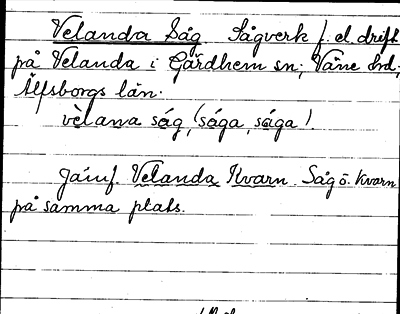 Velanda Såg Sågverk f. el. drift
på Velanda i Gärdhem sn; Väne hd;
Älfsborgs län.
vèlana såg, (såga, såga).
Jämf. Velanda Kvarn. Såg o. kvarn
på samma plats.